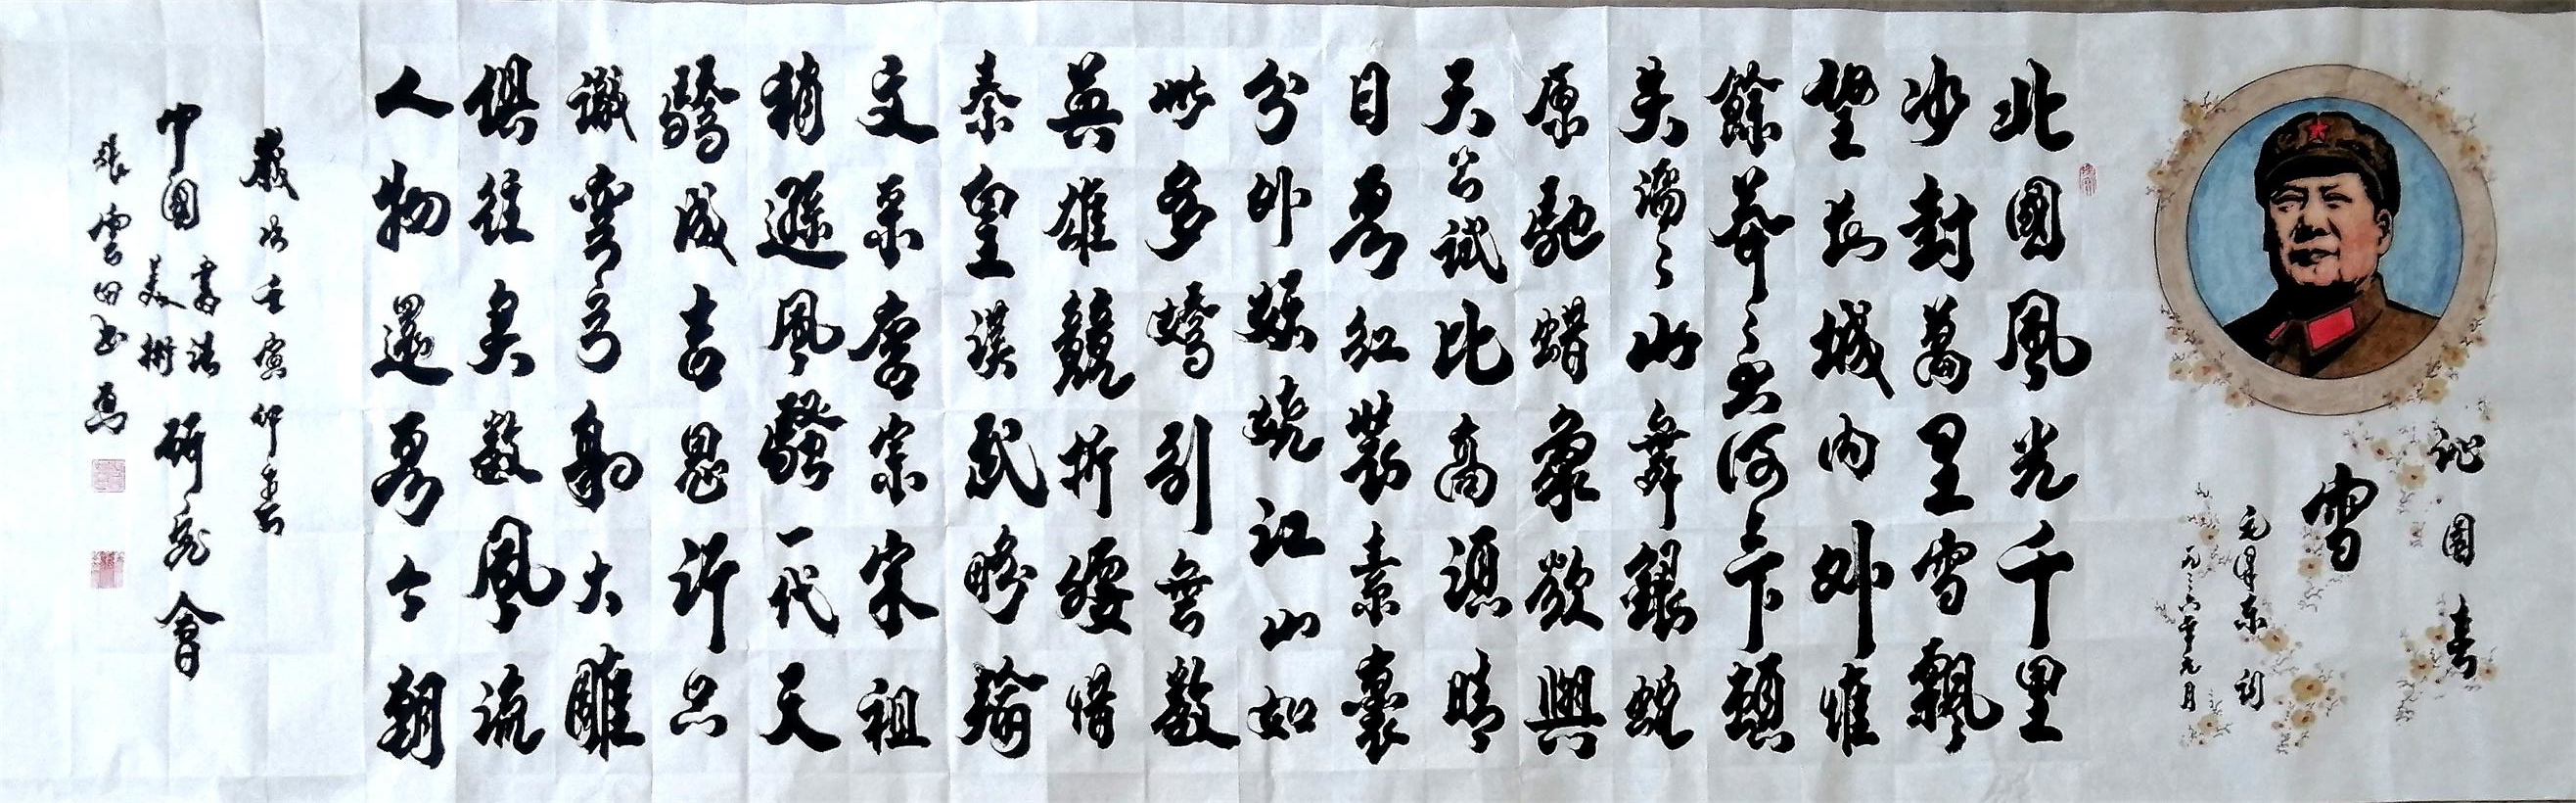 沁園春
雪
毛澤東詞
一九三六年元月
北國風光千里
冰封萬里雪飄
望長城內外惟
餘莽々大河上下頓
失滔々山舞銀蛇
原馳蜡象欲與
天公試比高須晴
日看紅裝素裹
分外妖嬈江山如
此多嬌引無數
英雄競折腰惜
秦皇漢武略輸
文采唐宗宋祖
稍遜風騷一代天
驕成吉思汗只
識彎弓射大雕
俱往矣數風流
人物還看今朝
歲次壬寅仲春
中國書法美術研究會
張雲田書寫